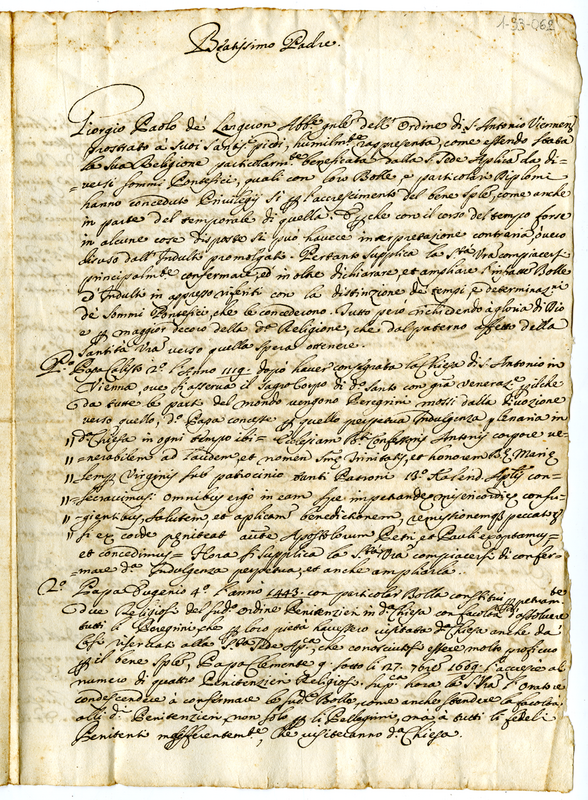 1-93-068
Beatissimo Padre.
Giorgio Paolo de Langeron Abb.e gnlè dell' Ordine di S. Antonio Viennens
prostrato à suoi Santis.mi piedi, humilm.te rappresenta, come essendo stata
la sua Religione particolarm.te beneficata dalla S. Sede Aplica da di=
versi sommi Pontefici, quali con loro Bolle, e particolari Diplomi
hanno conceduto Privilegij sì per l'accrescimento del bene sple, come anche
in parte del temporale di quella. E perche con il corso del tempo forse
in alcune cose disposte si può havere interpretazione contraria, ò vero
diverso dall' Indulti promolgati. Pertanto supplica la S.tà Vra compiacersi
principalm.te confermare, ed in oltre dichiarare, et ampliare l'infratte Bolle
d'Indulti in appresso riferiti con la distinzione de tempi, e determinaz.ni
de sommi Pontefici, che le concederono. Tutto però richiedendo a gloria di Dio
e per maggior decoro della d.a Religione, che dal paterno affetto della
Santità Vra verso quella spera ottenere.
P.o Papa Calisto 2.o l'Anno 1119. dopo haver consegrata la Chiesa di S. Antonio in
Vienna ove si asserva il Sagro Corpo di d.o Santo con gia veneraz.e, et che
da tutte le parti del mondo vengono Peregrini mossi dalla divozione
verso quello, d.o Papa concesse per quello perpetua Indulgenza plenaria in
d.a Chiesa in ogni tempo ibi= Eclesiam B.ti Confessoris Antonij corpore ve=
nerabilem ad laudem, et nomen Smae Trinitatis, et honorem B. Mariae
semp. Virginis sub patrocinio tanti Patroni 13.o Kalend. Aplis con=
secravimus: omnibus ergo in eam spe impetrandae misericordiae confu=
gientibus, salutem, et aplicam benedictionem, remissionemq peccator
si ex corde peniteat aucte Apostolorum Petri, et Pauli exoptamus,
et concedimus= Hora si supplica la S.tà Vra compiacersi di confer=
mare d.a Indulgenza perpetua, et anche ampliarla.
2.o Papa Eugenio 4.o l'anno 1443. con particolar Bolla constituì perpetuam.te
due Religiosi del sud.o ordine Penitenzieri in d.a Chiesa con facoltà di assolvere
tutti li Peregrini, che per loro pietà havessero visitata d.a Chiesa anche da
Casi riservati alla S.ta Sede Ap.ca, che conosciutosi essere molto proficuo
per il bene sple, Papa Clemente 9. sotto li 27. 7bre 1669. l'accrebbe al
numero di quattro Penitenzieri Religiosi. Sup.ca hora la S.tà Vra l'Oratore
condescendere à confirmare le sud.e Bolle, come anche stendere la facoltà
alli d.i Penitenzieri, non solo per li Pellegrini, ma à tutti li fedeli
Penitenti indifferentem.te, che visiteranno d.a Chiesa.